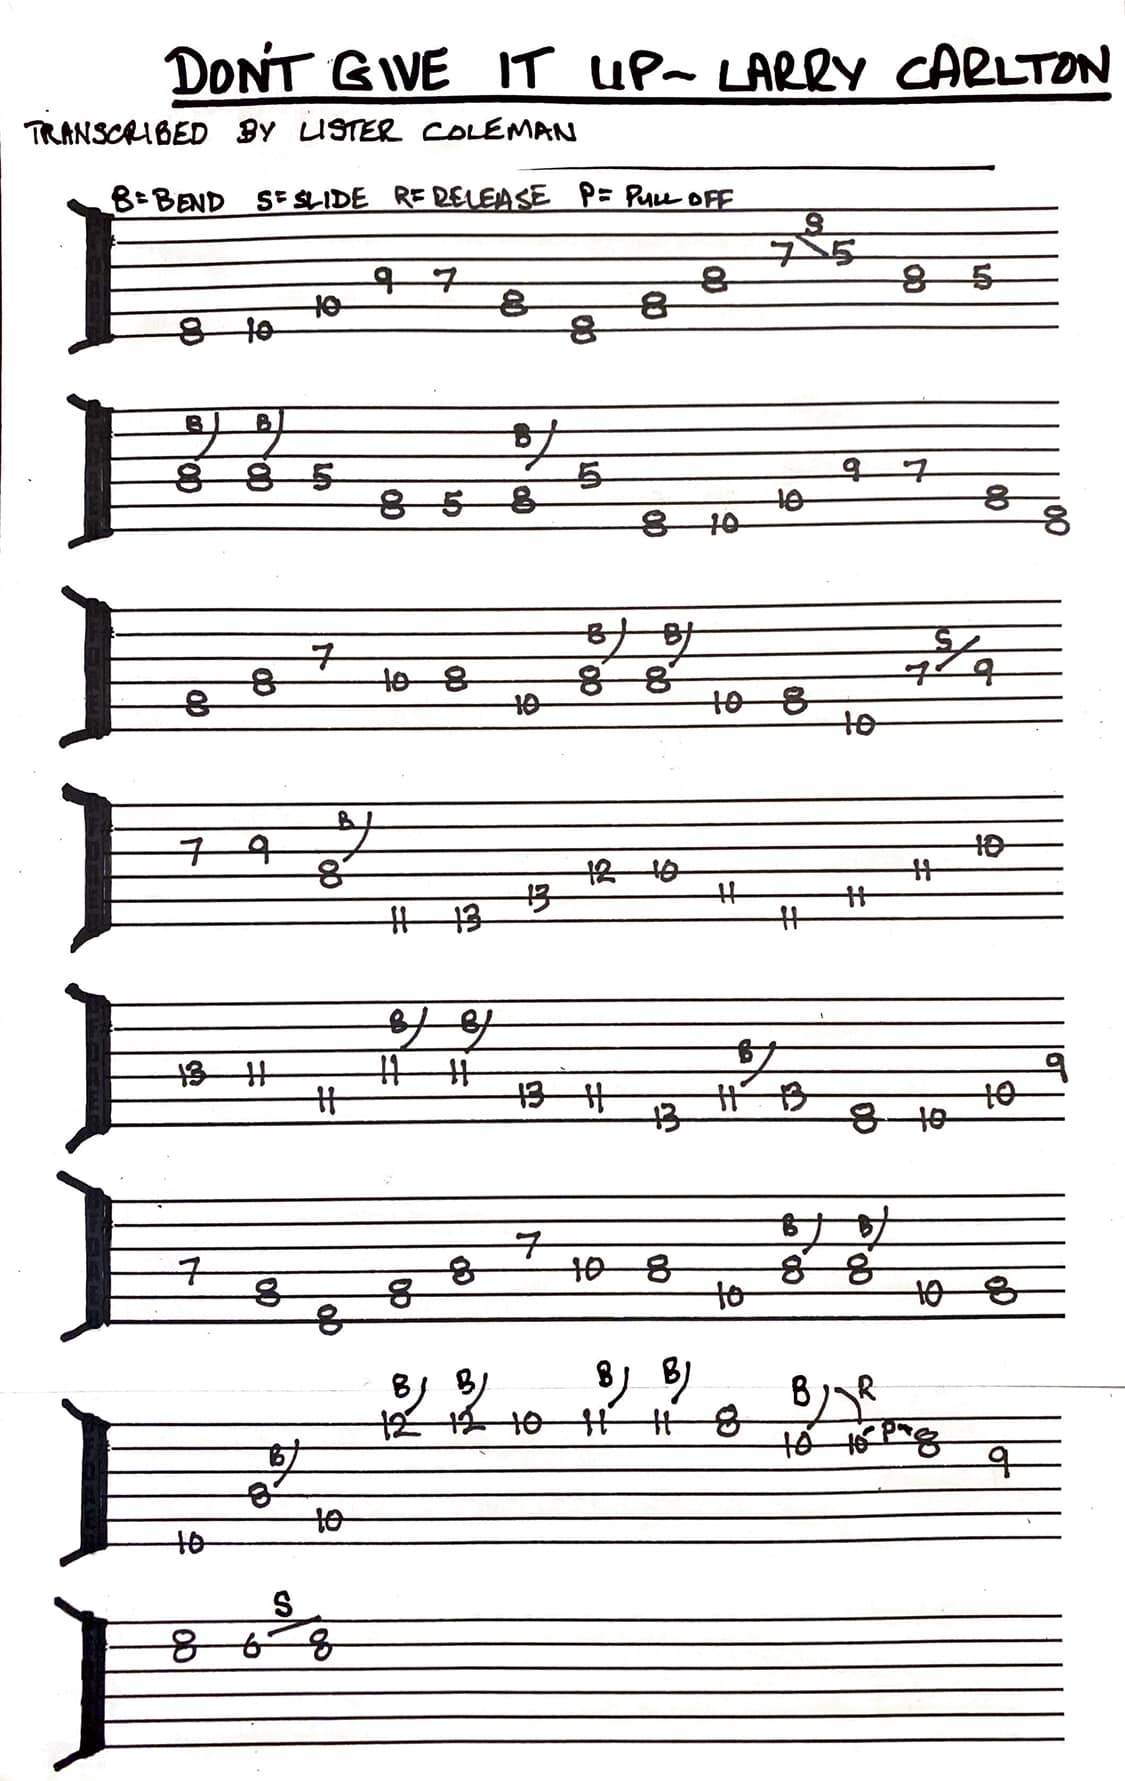 DON'T GIVE IT UP~ LARRY CARLTON
TRANSCRIBED BY LISTER COLEMAN
B=BEND S=SLIDE R=RELEASE P=PULL OFF
S
8 10 10 9 7 8 8 8 8 7 5 8 5
B B B
8 8 5 8 5 8 5 8 10 10 9 7 8 8
B B S
8 8 7 10 8 10 8 8 10 8 10 7 9
B
7 9 8 11 13 13 12 10 11 11 11 11 10
B B B
13 11 11 11 11 13 11 13 11 13 8 10 10 9
B B
7 8 8 8 8 7 10 8 10 8 8 10 8
B B B B B B R
10 8 10 12 12 10 11 11 8 10 10 P 8 9
S
8 6 8